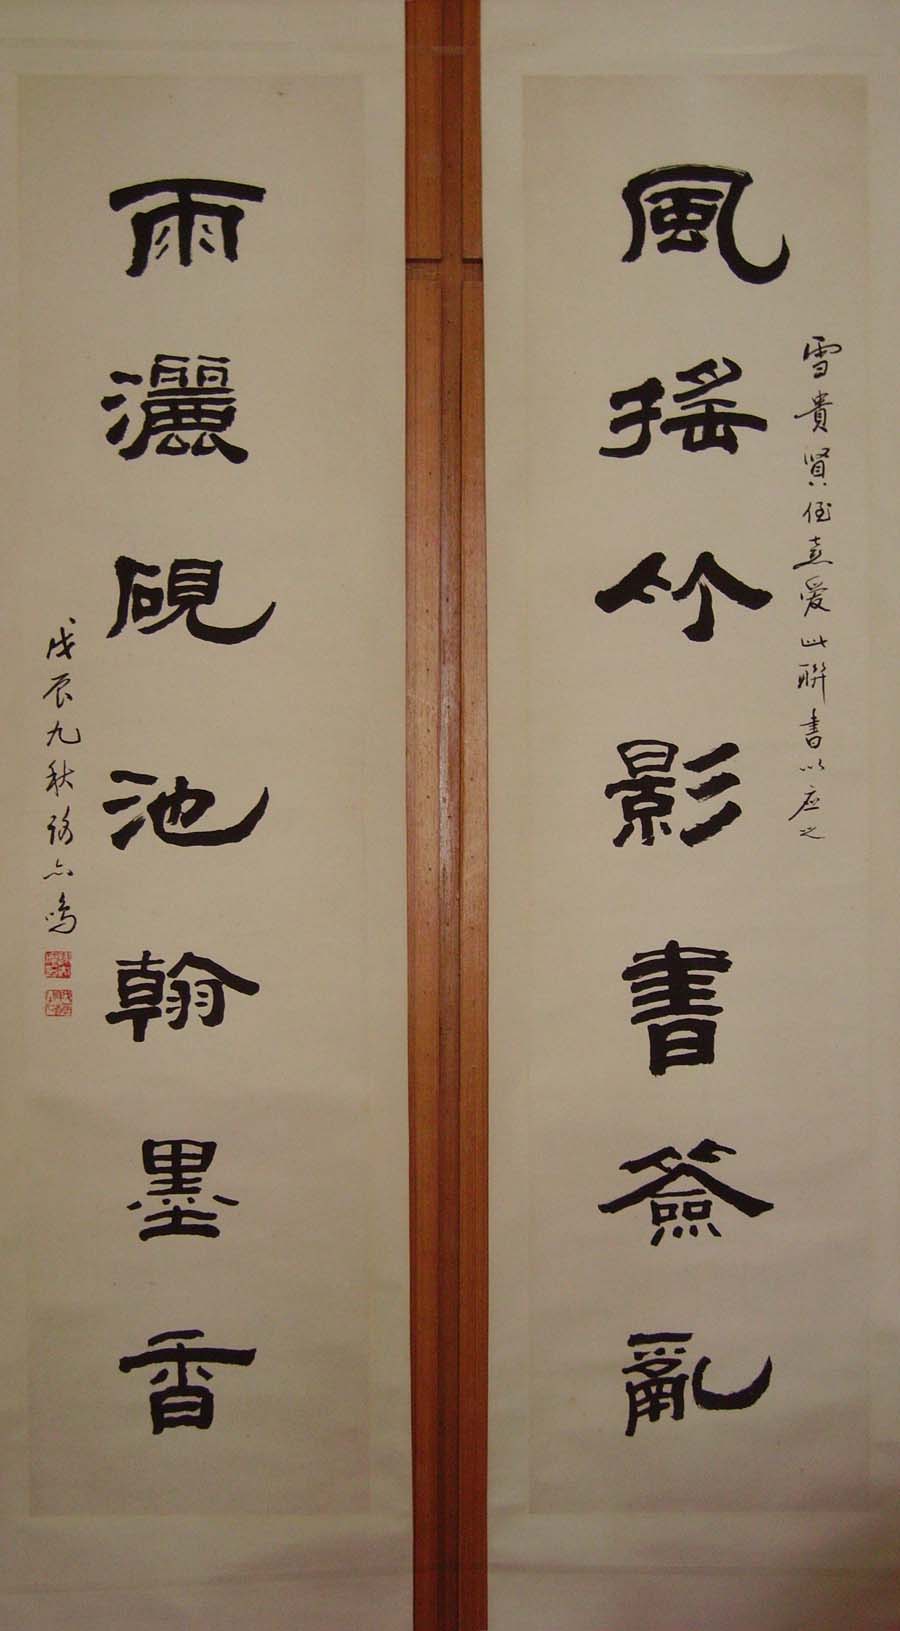 風搖竹影書簽亂
雪貴賢侄喜愛此聯書以应之
雨灑硯池翰墨香
戊辰九秋路亦鳴